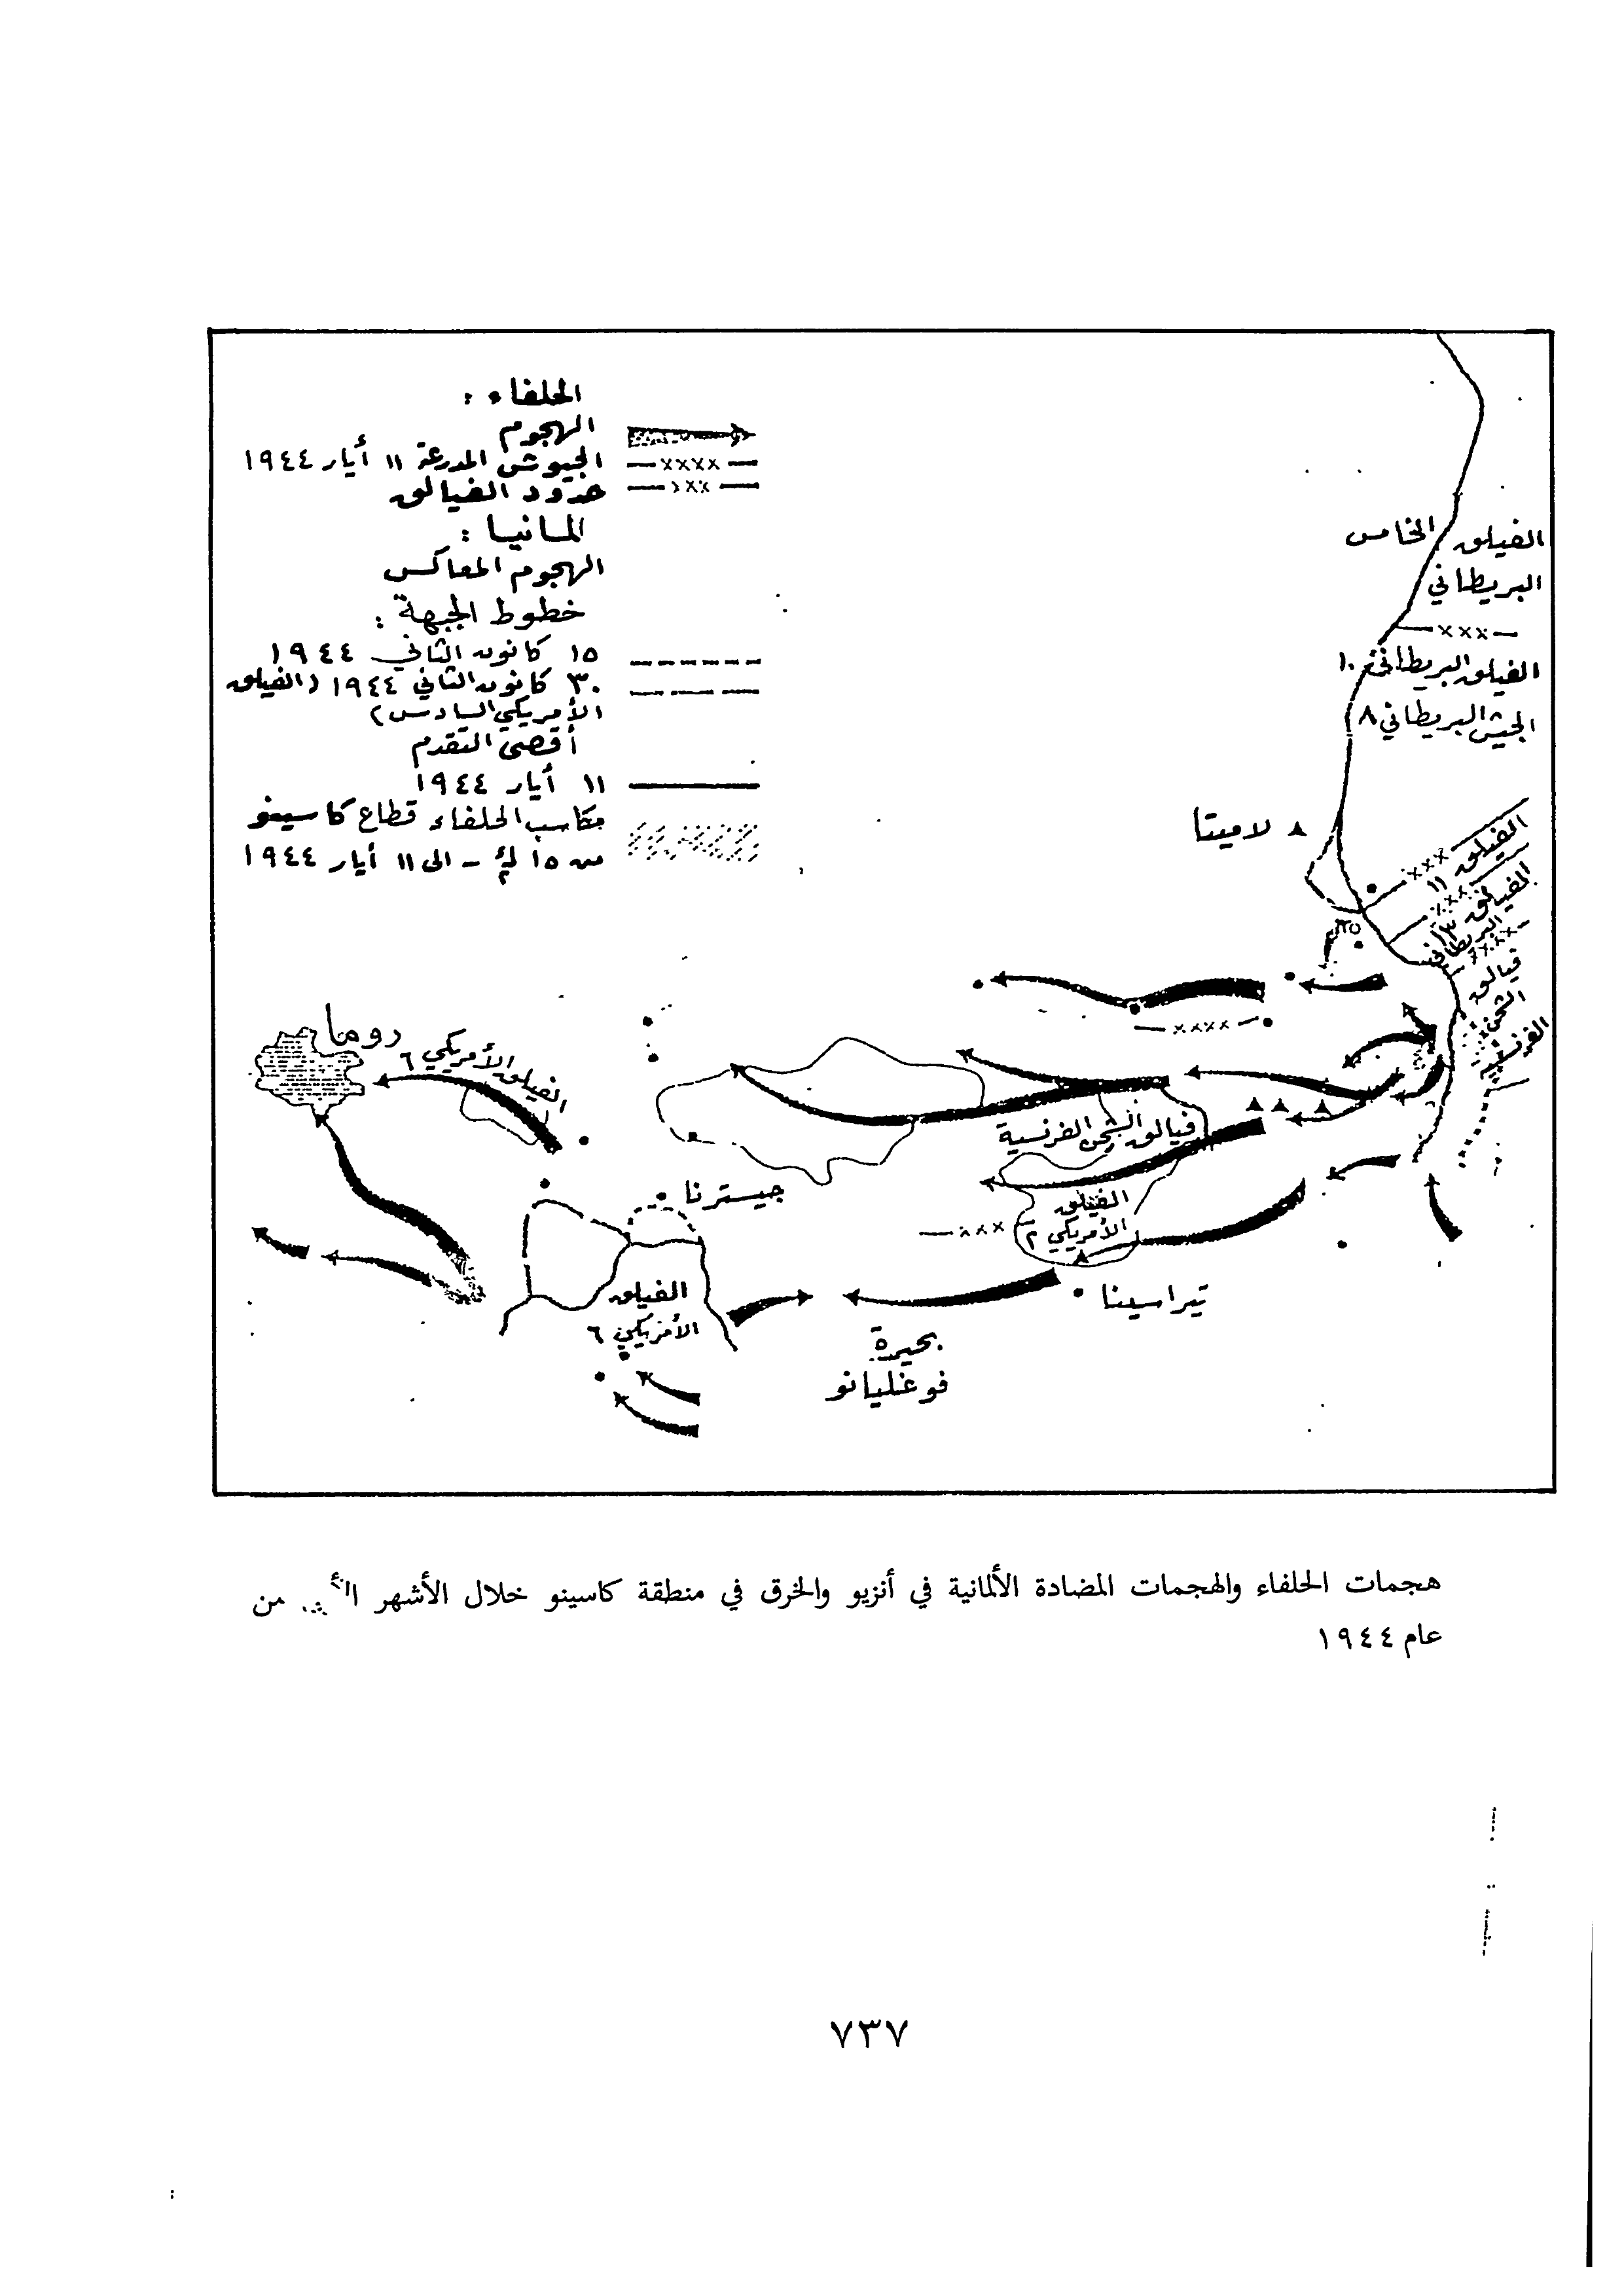 الحلفاء :
الهجوم
الجيوش المدرعة ١١ أيار ١٩٤٤
حدود الفيالق
المانيا :
الهجوم المعاكس
خطوط الجبهة :
١٥ كانون الثاني ١٩٤٤
٣٠ كانون الثاني ١٩٤٤ (الفيلق
الأمريكي السادس)
أقصى التقدم
١١ أيار ١٩٤٤
مكاسب الحلفاء قطاع كاسينو
من ١٥ ك٢ - الى ١١ أيار ١٩٤٤
الفيلق الخامس
البريطاني
الفيلق البريطاني ١٠
الجيش البريطاني ٨
لاميتا
الفيلق ١١
الفيلق ١٣
البريطاني
فيالق
الفرنسية
روما
الفيلق الأمريكي ٦
فيالق الفرنسية
الفيلق
الأمريكي ٢
جيسترنا
تيراسينا
الفيلق
الأمريكي ٦
بحيرة
فوغليانو
هجمات الحلفاء والهجمات المضادة الألمانية في أنزيو والخرق في منطقة كاسينو خلال الأشهر من
عام ١٩٤٤
٧٣٧